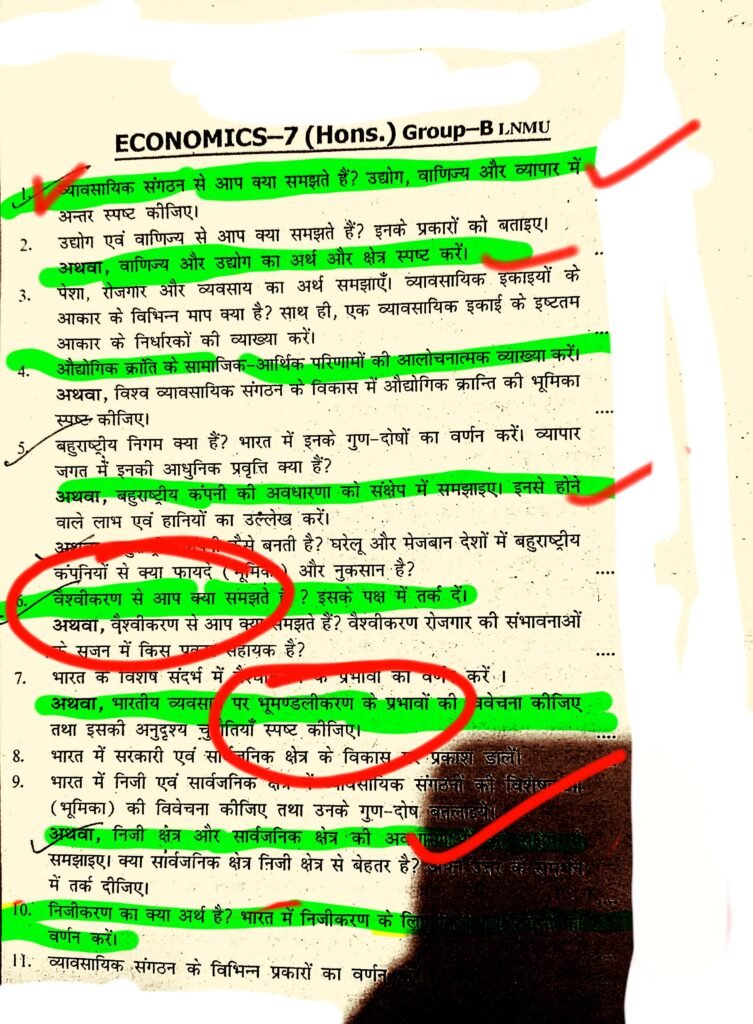 ECONOMICS–7 (Hons.) Group–B LNMU
1. व्यावसायिक संगठन से आप क्या समझते हैं? उद्योग, वाणिज्य और व्यापार में
अन्तर स्पष्ट कीजिए।
2. उद्योग एवं वाणिज्य से आप क्या समझते हैं? इनके प्रकारों को बताइए।
अथवा, वाणिज्य और उद्योग का अर्थ और क्षेत्र स्पष्ट करें। ..
3. पेशा, रोजगार और व्यवसाय का अर्थ समझाएँ। व्यावसायिक इकाइयों के
आकार के विभिन्न माप क्या है? साथ ही, एक व्यावसायिक इकाई के इष्टतम
आकार के निर्धारकों की व्याख्या करें। ...
4. औद्योगिक क्रांति के सामाजिक-आर्थिक परिणामों की आलोचनात्मक व्याख्या करें।
अथवा, विश्व व्यावसायिक संगठन के विकास में औद्योगिक क्रान्ति की भूमिका
स्पष्ट कीजिए। ....
5. बहुराष्ट्रीय निगम क्या हैं? भारत में इनके गुण-दोषों का वर्णन करें। व्यापार
जगत में इनकी आधुनिक प्रवृत्ति क्या हैं?
अथवा, बहुराष्ट्रीय कंपनी की अवधारणा को संक्षेप में समझाइए। इनसे होने
वाले लाभ एवं हानियों का उल्लेख करें।
बनती है? घरेलू और मेजबान देशों में बहुराष्ट्रीय
कंपनियों से क्या फायदे (भूमिका) और नुकसान है? ....
6. वैश्वीकरण से आप क्या समझते ? इसके पक्ष में तर्क दें।
अथवा, वैश्वीकरण से आप क्या समझते हैं? वैश्वीकरण रोजगार की संभावनाओं
सृजन में किस सहायक है? ....
7. भारत के विशेष संदर्भ में के प्रभावों का वर्णन करें ।
अथवा, भारतीय पर भूमण्डलीकरण के प्रभावों की कीजिए
तथा इसकी अनुदृश्य स्पष्ट कीजिए। ....
8. भारत में सरकारी एवं क्षेत्र के विकास पर प्रकाश डालें।
9. भारत में निजी एवं सार्वजनिक संगठनों की
(भूमिका) की विवेचना कीजिए तथा उनके गुण-दोष बतलाइये।
अथवा, निजी क्षेत्र और सार्वजनिक क्षेत्र की
समझाइए। क्या सार्वजनिक क्षेत्र निजी क्षेत्र से बेहतर है? अपने उत्तर के समर्थन
में तर्क दीजिए। ....
10. निजीकरण का क्या अर्थ है? भारत में निजीकरण के
वर्णन करें।
11. व्यावसायिक संगठन के विभिन्न प्रकारों का वर्णन